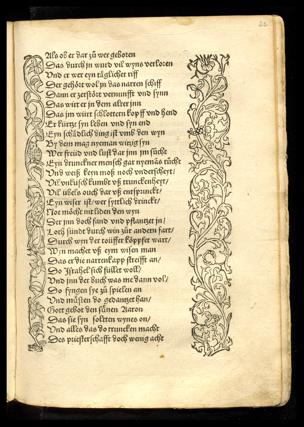 Also ob er dar zů wer geboten
Das durch jn wurd vil wyns verloren
Und er wer eyn täglicher riff
Der gehört wol jn das narren schiff
Dann er zerstört vernunfft und synn
Das wurt er jn dem alter jnn
Das jm würt schlottern kopff und hend
Er kürtzt syn leben und syn end
Eyn schädlich ding ist umb den wyn
By dem mag nyeman witzig syn
Wer freüd und lust dar jnn jm sücht
Eyn drunckner mensch gar nyemäs rücht
Und weiß keyn moß noch underscheyt/
Vil unküsch kumbt uß trunckenheyt/
Vil übels ouch dar uß entspringt/
Eyn wiser ist/wer syttlich drinckt/
Noe möcht nit liden den wyn
Der jnn doch fand und pflantzet jn/
Loth sündt durch win zůr andern fart/
Durch wyn der toiffer köppfet wart/
Wyn machet uß eym wisen man
Das er die narrenkapp streifft an/
Do Israhel sich füllet woll/
Und jnn der buch was me dann vol/
Do fyngen sye zů spielen an
Und müsten do gedantzet han/
Gott gebot den sünen Aaron
Das sie syn soltten wynes on/
Und alles das do truncken macht
Des priesterschafft doch wenig acht